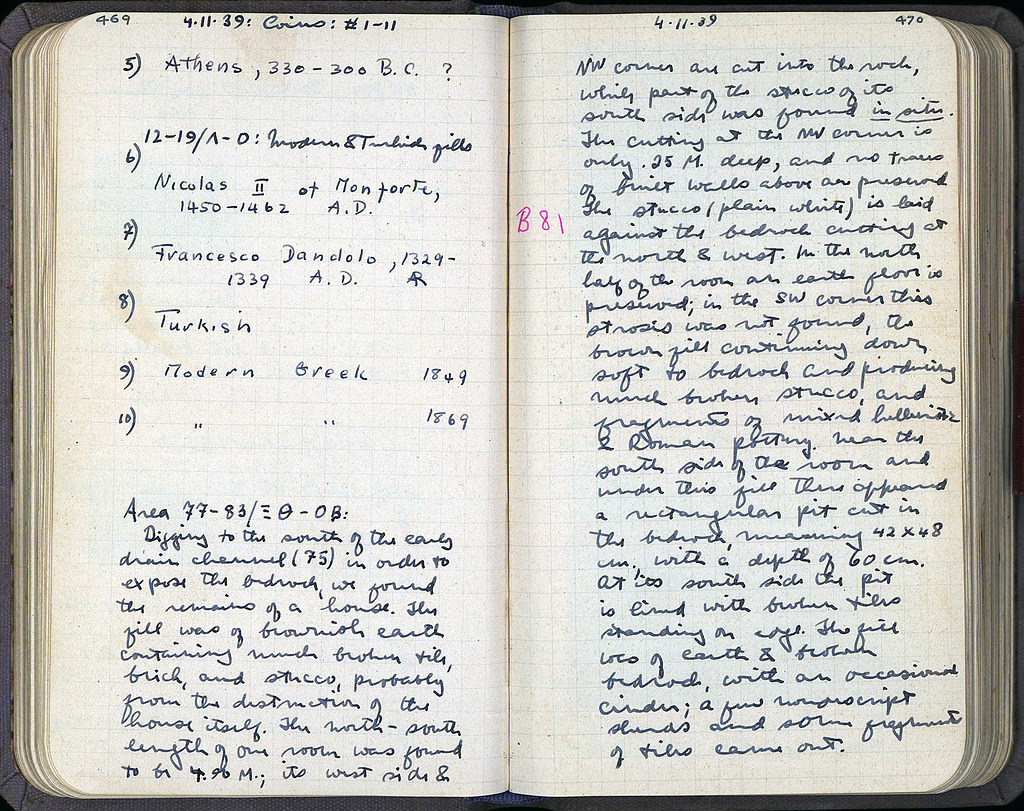 469
4·11·39: Coins: #1-11
5) Athens, 330-300 B.C. ?
12-19/Λ-O: Modern & Turkish fills
6)
Nicolas II of Monforte,
1450-1462 A.D.
7)
Francesco Dandolo, 1329-
1339 A.D. AR
8)
Turkish
9) Modern Greek 1849
10) " " 1869
Area 77-83/Ξ Θ - OB:
Digging to the south of the early
drain channel (75) in order to
expose the bedrock, we found
the remains of a house. The
fill was of brownish earth
containing much broken tile,
brick, and stucco, probably
from the destruction of the
house itself. The north-south
length of one room was found
to be M.; its west side &
4·11·39
470
NW corner are cut into the rock,
while part of the stucco of its
south side was found in situ.
The cutting at the NW corner is
only .25 M. deep, and no traces
of built walls above are preserved
The stucco (plain white) is laid
B81
against the bedrock cutting at
the north & west. In the north
half of the room an earth floor is
preserved; in the SW corner this
strosis was not found, the
brown fill continuing down
soft to bedrock and producing
much broken stucco, and
fragments of mixed hellenistic
& Roman pottery. Near the
south side of the room and
under this fill there appeared
a rectangular pit cut in
the bedrock, measuring 42 x 48
cm., with a depth of 60 cm.
At its south side the pit
is lined with broken tiles
standing on edge. The fill
was of earth & broken
bedrock, with an occasional
cinder; a few nondescript
sherds and some fragments
of tiles came out.